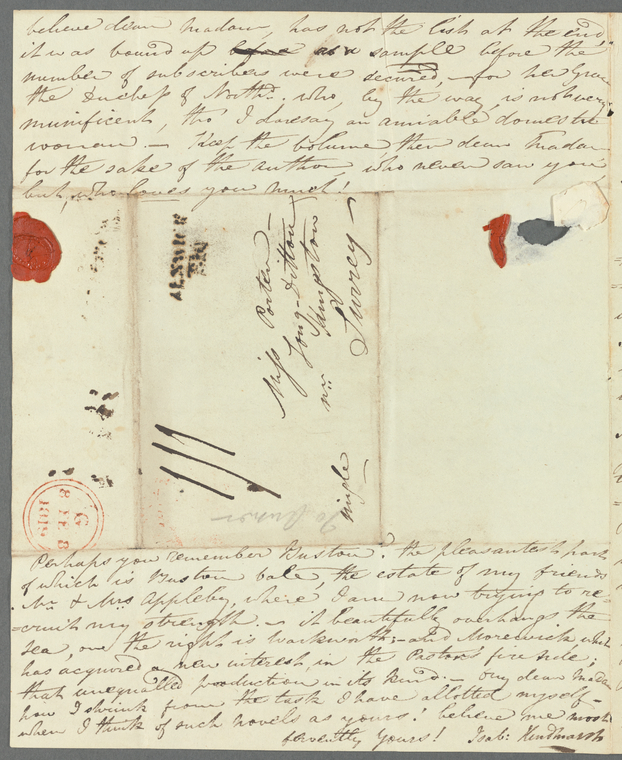 believe dear Madam, has not the list at the end
it was bound up before as a sample before the
number of subscribers were secured, – for her Grace
the Duchess of Northd. who, by the way, is not very
munificent, tho' I daresay an amiable domestic
woman – Keep the volume then dear Madam
for the sake of the author, who never saw you,
but, who loves you much!
ALNWICK
Miss Porter –
Long-Ditton
nr. Kingston
Surrey –
single –
G
8 FE 8
1819
Perhaps you remember Buston? the pleasantest part
of which is Buston vale, the estate of my friends
Mr. & Mrs. Appleby, where I am now trying to re-
=cruit my strength – it beautifully overhangs the
sea, on the right is Warkworth – and Morewick which
has acquired a new interest, in the Pastor's fire side;
that unequalled production in its kind. – my dear Madam
how I shrink from the task I have allotted myself –
when I think of such novels as yours! believe me most
fervently Yours! Isab: Hindmarsh